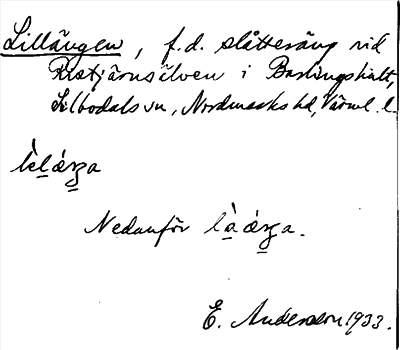 Lillängen, f.d. slåtteräng vid
Kistjärnsälven i Bastingshult,
Silbodals sn, Nordmarks hd, Värml. l.
Nedanför
E. Anderson 1933.